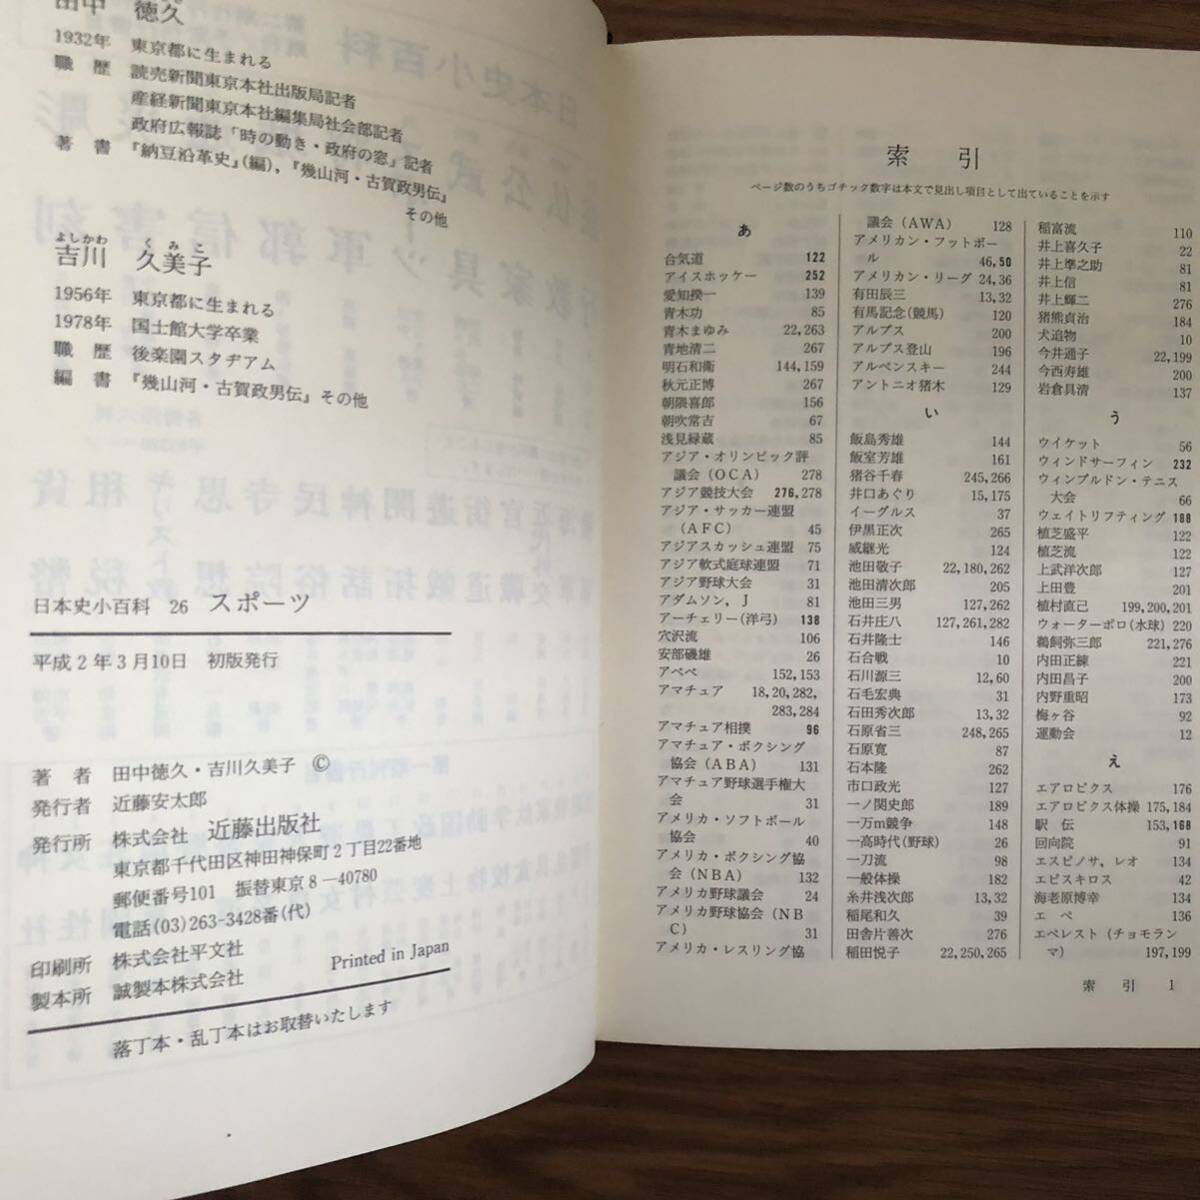 田中 徳久
1932年 東京都に生まれる
職 歴 読売新聞東京本社出版局記者
産経新聞東京本社編集局社会部記者
政府広報誌「時の動き・政府の窓」記者
著 書 『納豆沿革史』(編),『幾山河・古賀政男伝』
その他
よしかわ くみこ
吉川 久美子
1956年 東京都に生まれる
1978年 国士館大学卒業
職 歴 後楽園スタヂアム
編 書 『幾山河・古賀政男伝』その他
日本史小百科 26 スポーツ
平成2年3月10日 初版発行
著 者 田中徳久・吉川久美子 ©
発行者 近藤安太郎
発行所 株式会社 近藤出版社
東京都千代田区神田神保町2丁目22番地
郵便番号101 振替東京8-40780
電話(03)263-3428番(代)
印刷所 株式会社平文社
製本所 誠製本株式会社
Printed in Japan
落丁本・乱丁本はお取替いたします
索 引
ページ数のうちゴチック数字は本文で見出し項目として出ていることを示す
あ
合気道 122
アイスホッケー 252
愛知揆一 139
青木功 85
青木まゆみ 22,263
青地清二 267
明石和衛 144,159
秋元正博 267
朝隈喜郎 156
朝吹常吉 67
浅見緑蔵 85
アジア・オリンピック評
議会(OCA) 278
アジア競技大会 276,278
アジア・サッカー連盟
(AFC) 45
アジアスカッシュ連盟 75
アジア軟式庭球連盟 71
アジア野球大会 31
アダムソン,J 81
アーチェリー(洋弓) 138
穴沢流 106
安部磯雄 26
アベベ 152,153
アマチュア 18,20,282,
283,284
アマチュア相撲 96
アマチュア・ボクシング
協会(ABA) 131
アマチュア野球選手権大
会 31
アメリカ・ソフトボール
協会 40
アメリカ・ボクシング協
会(NBA) 132
アメリカ野球議会 24
アメリカ野球協会(NB
C) 31
アメリカ・レスリング協
議会(AWA) 128
アメリカン・フットボー
ル 46,50
アメリカン・リーグ 24,36
有田辰三 13,32
有馬記念(競馬) 120
アルプス 200
アルプス登山 196
アルペンスキー 244
アントニオ猪木 129
い
飯島秀雄 144
飯室芳雄 161
猪谷千春 245,266
井口あぐり 15,175
イーグルス 37
伊黒正次 265
威継光 124
池田敬子 22,180,262
池田清次郎 205
池田三男 127,262
石井庄八 127,261,282
石井隆士 146
石合戦 10
石川源三 12,60
石毛宏典 31
石田秀次郎 13,32
石原省三 248,265
石原寛 87
石本隆 262
市口政光 127
一ノ関史郎 189
一万m競争 148
一高時代(野球) 26
一刀流 98
一般体操 182
糸井浅次郎 13,32
稲尾和久 39
田舎片善次 276
稲田悦子 22,250,265
稲富流 110
井上喜久子 22
井上準之助 81
井上信 81
井上輝二 276
猪熊貞治 184
犬追物 10
今井通子 22,199
今西寿雄 200
岩倉具清 137
う
ウイケット 56
ウィンドサーフィン 232
ウィンブルドン・テニス
大会 66
ウェイトリフティング 188
植芝盛平 122
植芝流 122
上武洋次郎 127
上田豊 201
植村直己 199,200,201
ウォーターポロ(水球) 220
鵜飼弥三郎 221,276
内田正練 221
内田昌子 200
内野重昭 173
梅ヶ谷 92
運動会 12
え
エアロビクス 176
エアロビクス体操 175,184
駅 伝 153,168
回向院 91
エスピノサ,レオ 134
エピスキロス 42
海老原博幸 134
エ ペ 136
エベレスト(チョモラン
マ) 197,199
索 引 1